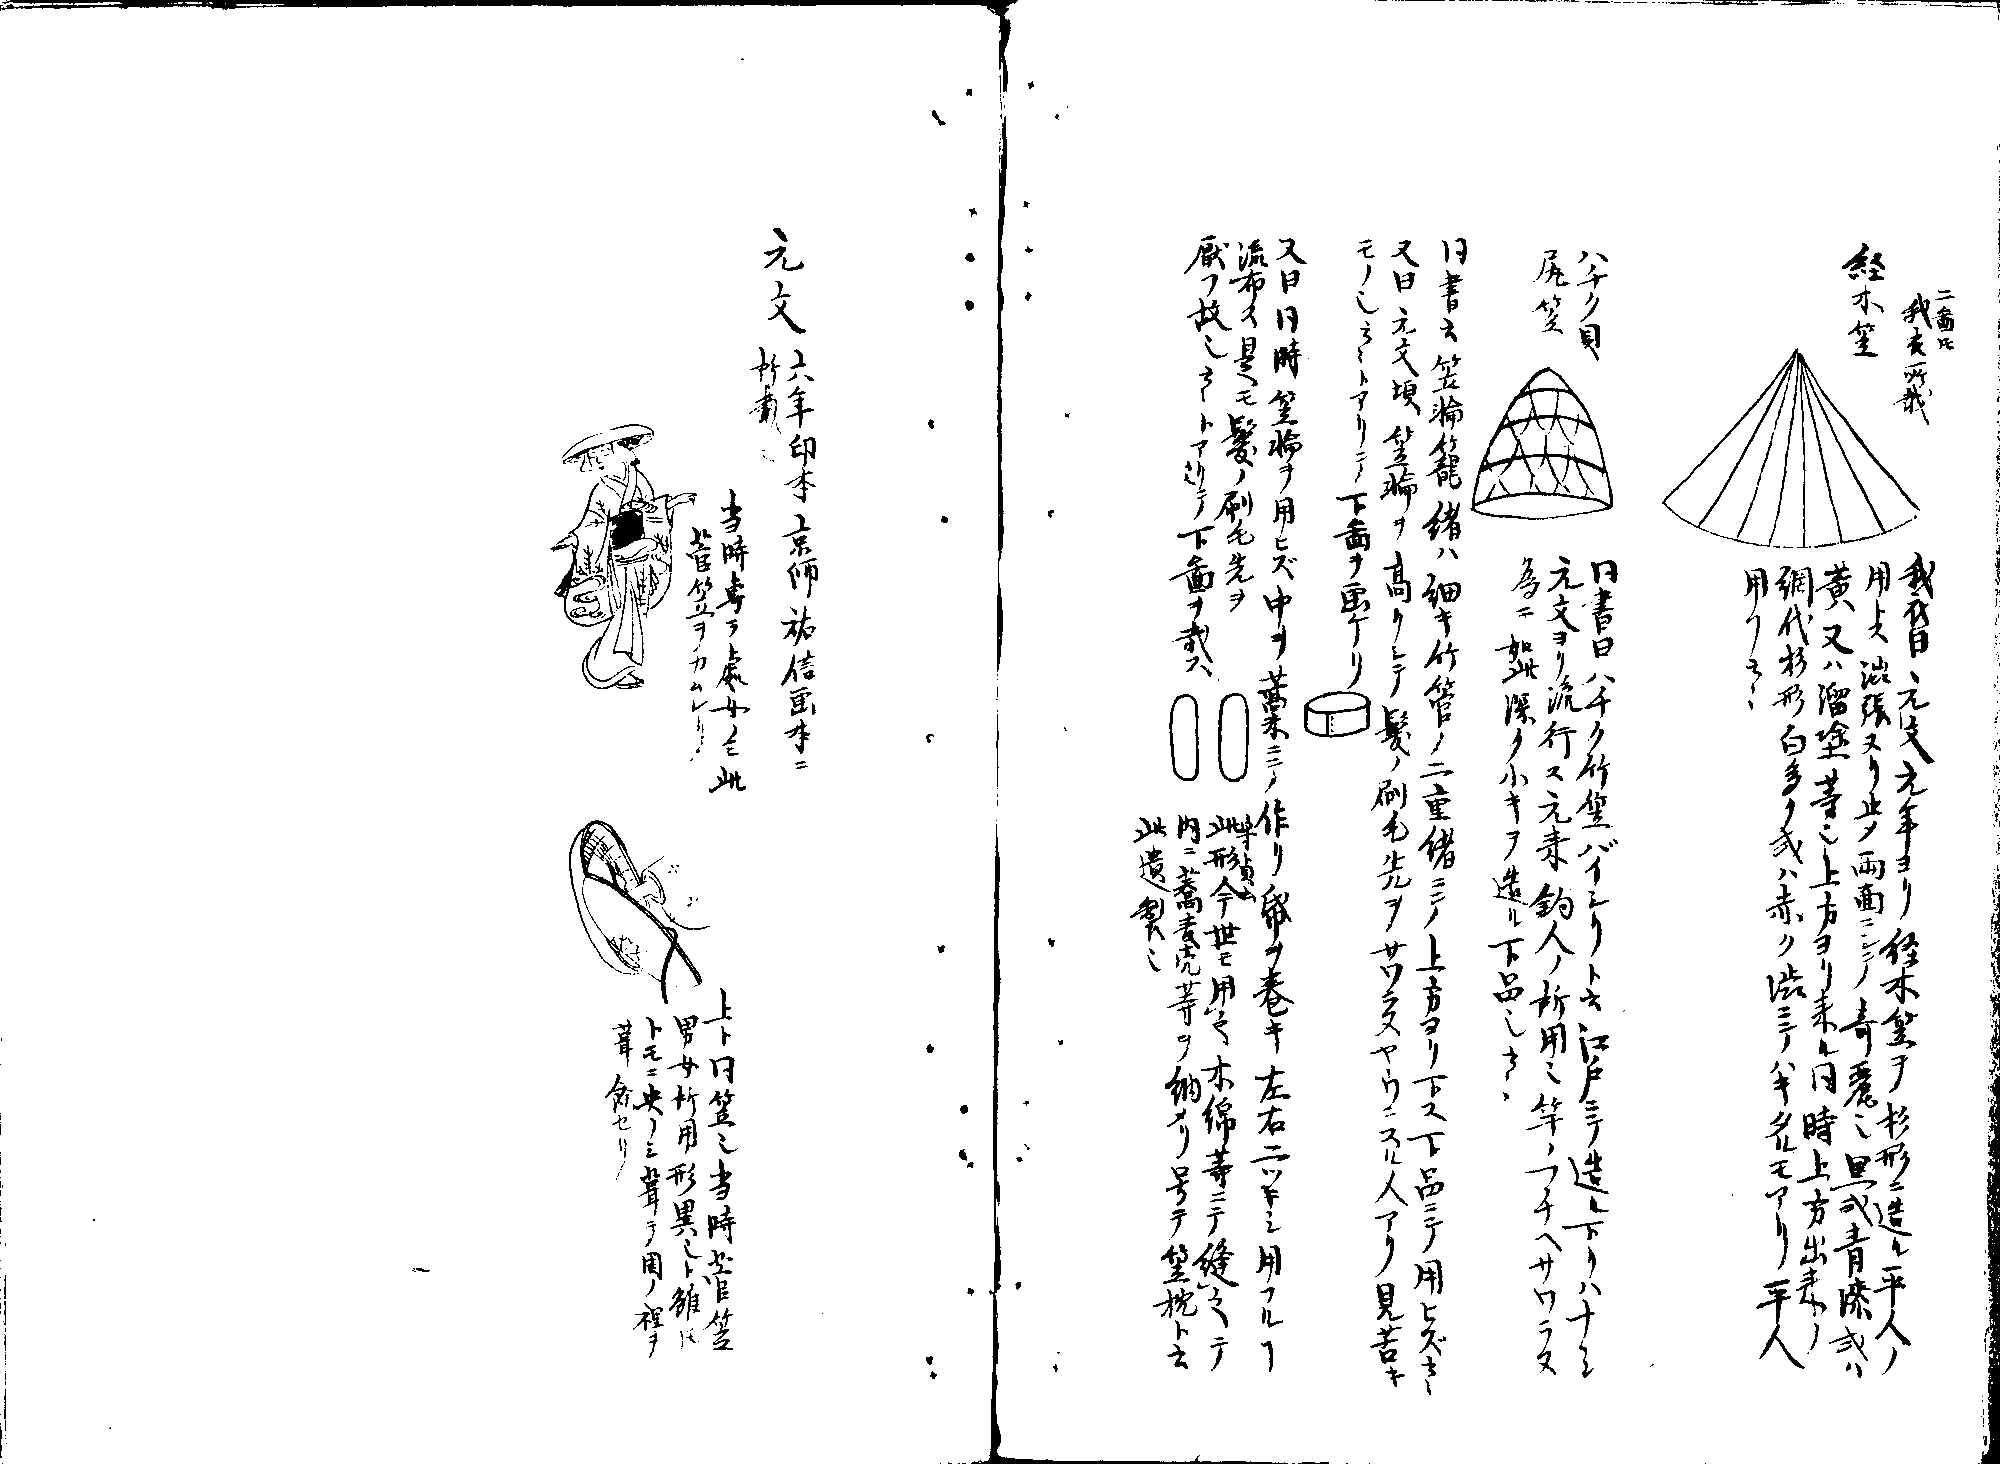 二図トモ
我衣所載
経木笠
我衣曰元文元年ヨリ経木笠ヲ杉形ニ造ル平人ノ
用上ス渋張ヌリ止メ両面ニシテ奇麗也黒或青漆或ハ
黄又ハ溜塗等也上方ヨリ来ル同時上方出来ノ
網代杉形白多ク或ハ赤ク渋ニテハキタルモアリ平人
用フ云々
ハチク貝
尻笠
同書曰ハチク竹笠バイシリト云江戸ニテ造ル下リハナシ
元文ヨリ流行ス元来釣人ノ所用也竿ノフチヘサワラヌ
為ニ如此深ク小キヲ造ル下品也云々
同書云笠輪籠緒ハ細キ竹管ノ二重緒ニシテ上方ヨリ下ス下品ニテ用ヒズ云々
又曰元文頃笠輪ヲ高クシテ髪ノ刷毛先ヲサワラヌヤウニスル人アリ見苦キ
モノ也云々トアリテ下図ヲ画ケリ
又曰同時笠輪ヲ用ヒズ中ヲ藁ニテ作リ紙ヲ巻キ左右二ツトシ用フルコト
流布ス是モ髪ノ刷毛先ヲ
厭フ故也云々トアリテ下図ヲ載ス
守貞云
此形今世モ用之木綿等ニテ縫之テ
内ニ蕎麦売等ヲ納メリ号テ笠枕ト云
此遺製也
元文
六年印本京師祐信画本ニ
所載之
当時専ラ処女ノミ此
菅笠ヲカムレリ
上ト同笠也当時菅笠
男女所用形異也ト雖ドモ
トモニ央ノミ葺テ周ノ裡ヲ
葺余セリ